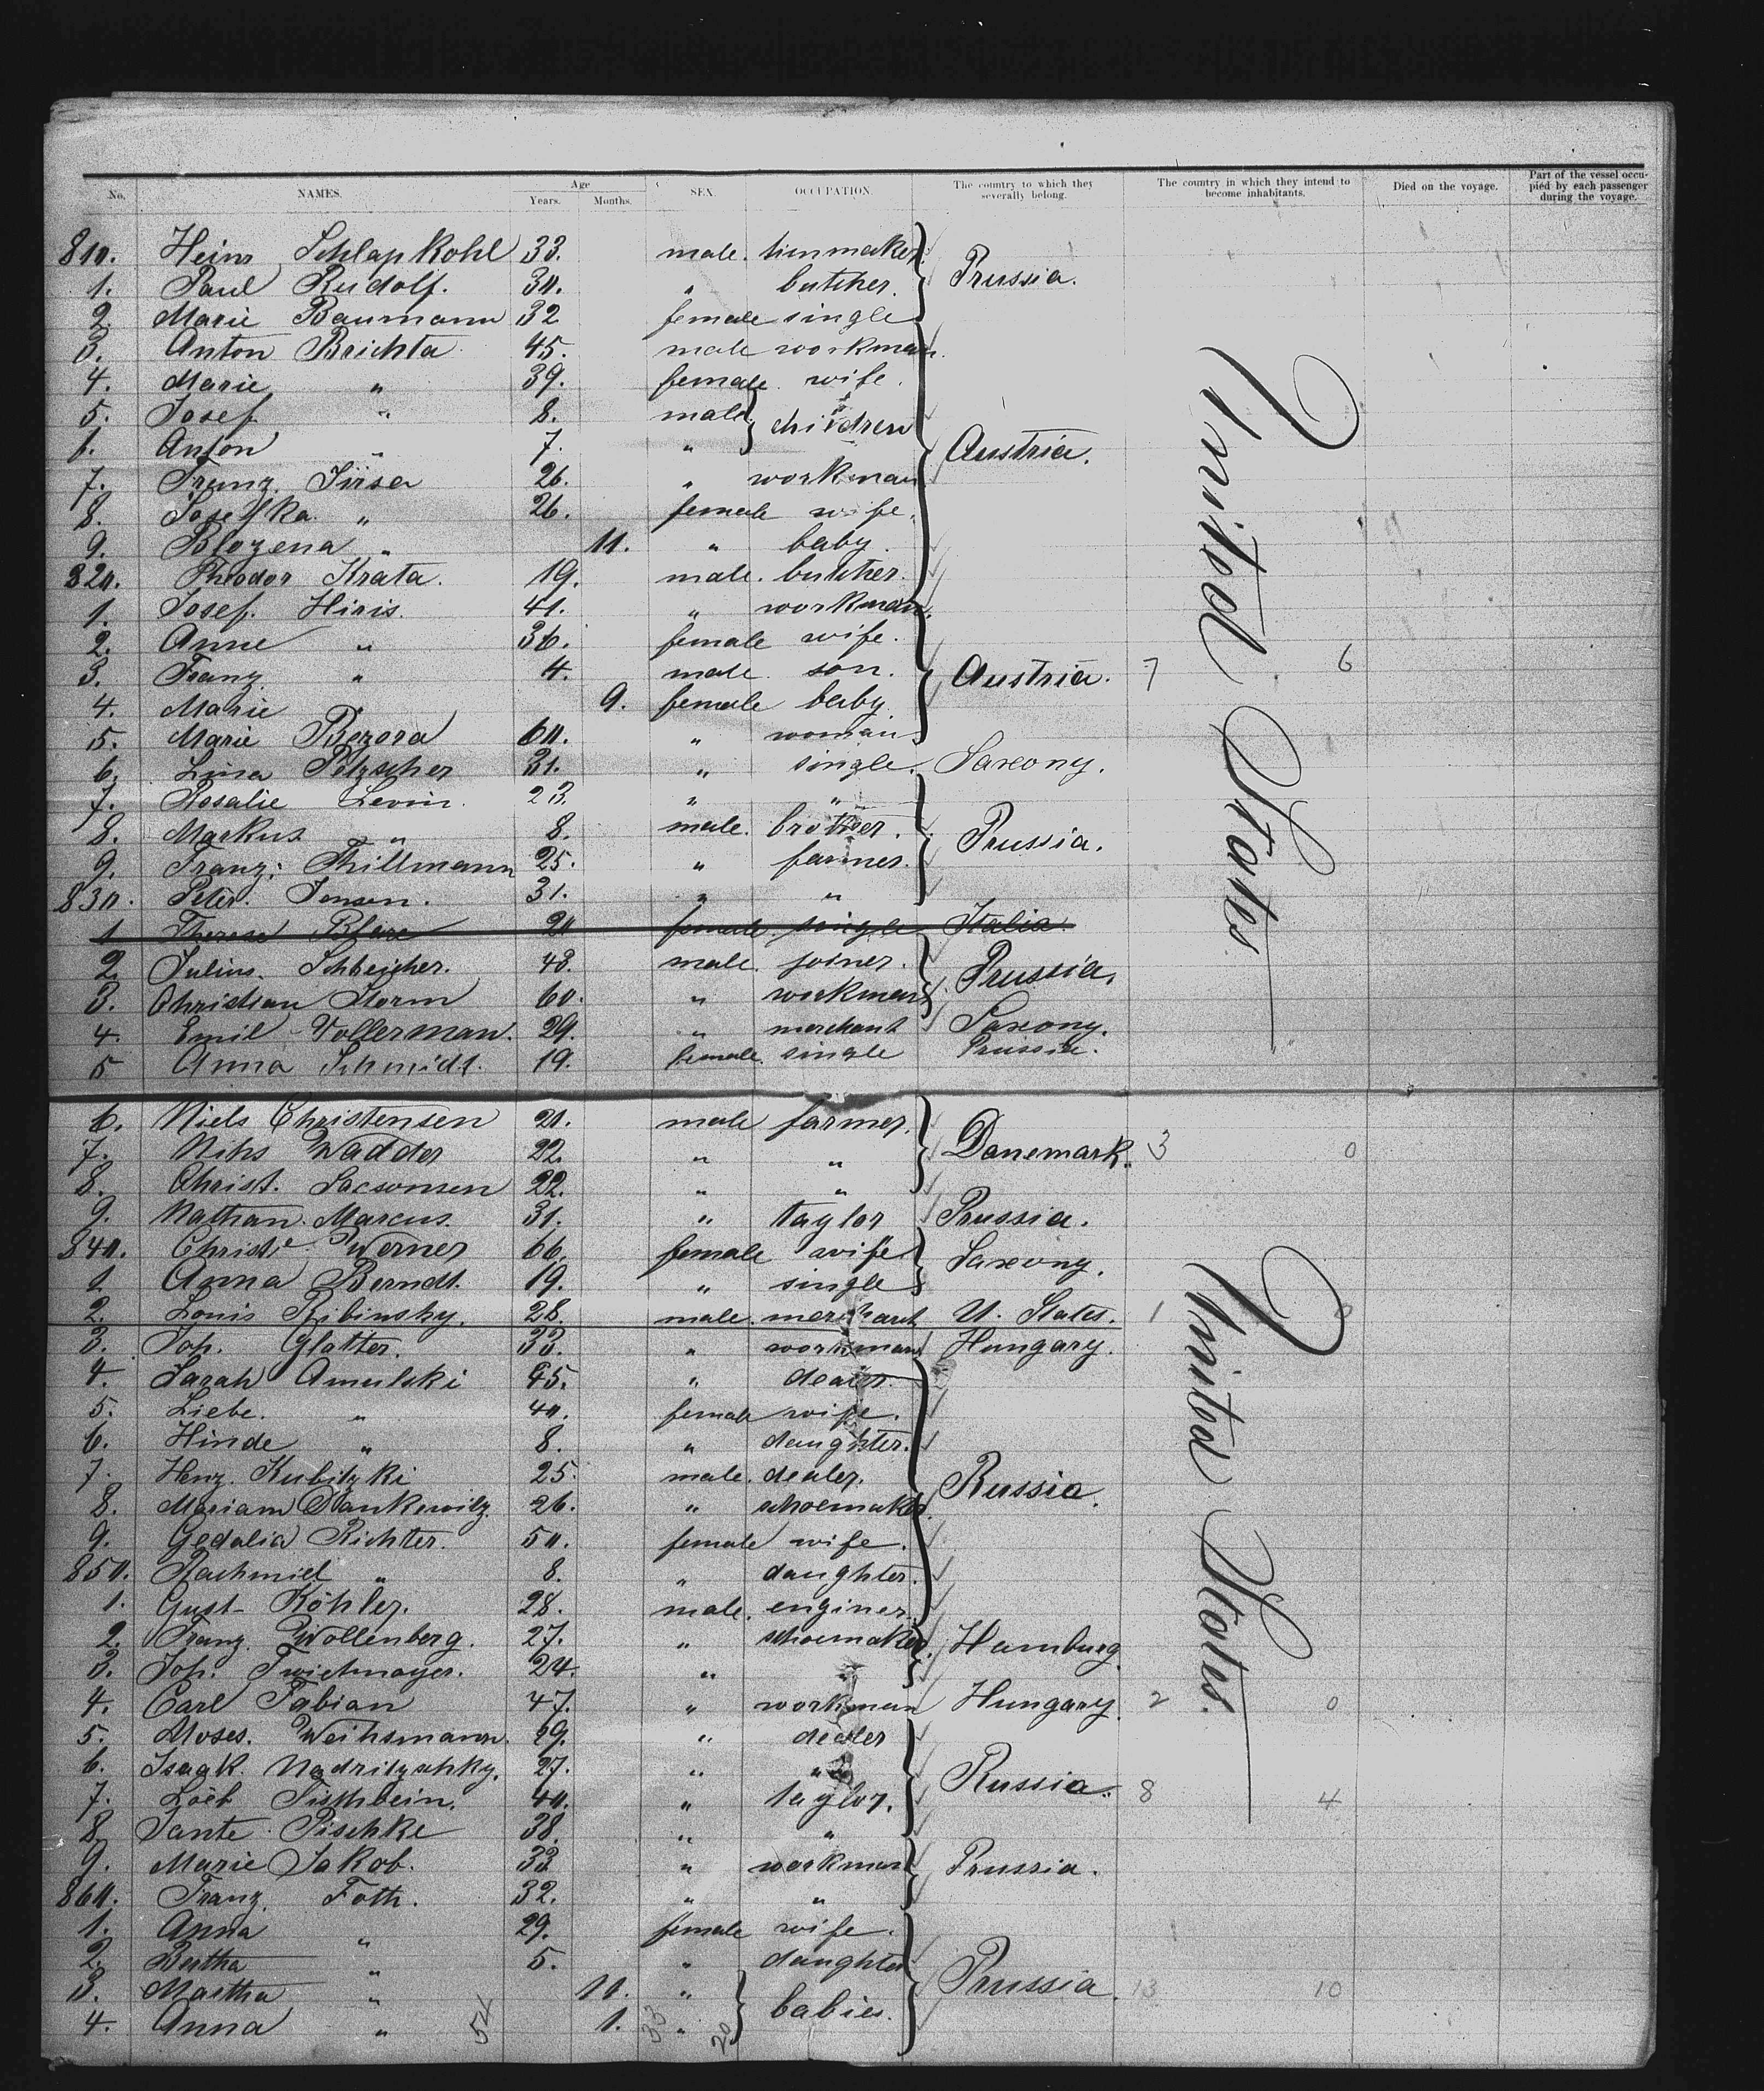 No. NAMES. Age Years. Months. SEX. OCCUPATION. The country to which they severally belong. The country in which they intend to become inhabitants. Died on the voyage. Part of the vessel occupied by each passenger during the voyage.
810. Heinr Schlapkohl 33. male. tinmaker. Prussia.
1. Paul Rudolf. 30. " butcher.
2. Marie Baumann 32 female single
3. Anton Brichta 45. male workman.
4. Marie " 39. female wife.
5. Josef " 8. male children
6. Anton " 7. " Austria.
7. Franz Jirsa 26. " workman
8. Josefka " 26. female wife.
9. Blozena " 11. " baby.
820. Theodor Krata. 19. male. butcher.
1. Josef. Hiris. 41. " workman.
2. Anne " 36. female wife.
3. Franz " 4. male son. Austria. 7 6
4. Marie " 9. female baby.
5. Marie Bezora 60. " woman
6. Lina Petzscher 31. " single. Saxony.
7. Rosalie Levin. 23. " "
8. Markus " 8. male. brother. Prussia.
9. Franz: Thillmann 25. " farmer.
830. Peter. Jensen. 31. " "
1 Therese 20 female single Italia.
2. Julius. Schleicher. 48. male. joiner. Prussia.
3. Christian Storm 60. " workman
4. Emil Vollerman. 29. " merchant Saxony.
5 Anna Schmidt. 19. female. single Prussia.
6. Niels Christensen 21. male farmer.
7. Nihs Wadder 22. " " Danemark. 3 0
8. Christ. Sacsonsen 22. " "
9. Nathan. Marcus. 31. " taylor Prussia.
840. Christe. Werner 66. female wife Saxony.
1. Anna Berndt. 19. " single
2. Louis Ribinsky. 28. male. merchant U. States. 1 0
3. Joh. Glatter. 33. " workman Hungary.
4. Sarah Amulski 45. " dealer.
5. Liebe. " 40. female wife.
6. Hinde " 8. " daughter.
7. Henz. Kubitzki 25. male. dealer. Russia.
8. Mariam Dankewitz. 26. " schoemaker.
9. Gedalia Richter. 50. female wife.
850. Rachmiel " 8. " daughter.
1. Gust Köhler. 28. male. enginer.
2. Franz. Wollenberg. 27. " schoemaker. Hamburg.
3. Joh. Twietmayer. 24. " "
4. Carl Fabian 47. " workman Hungary. 2 0
5. Moses. Weihsmann. 29. " dealer
6. Isaak. Nadritzschky. 27. " "
7. Loeb Fischbein. 40. " taylor. Russia. 8 4
8. Sante. Pischke 38. " "
9. Marie Jakob. 33 " workman Prussia.
860. Franz. Foth. 32. " "
1. Anna " 29. female wife.
2. Bertha " 5. " daughter
3. Martha " 11. " babies. Prussia. 13 10
4. Anna " 1. "
54 33 20
United States
United States